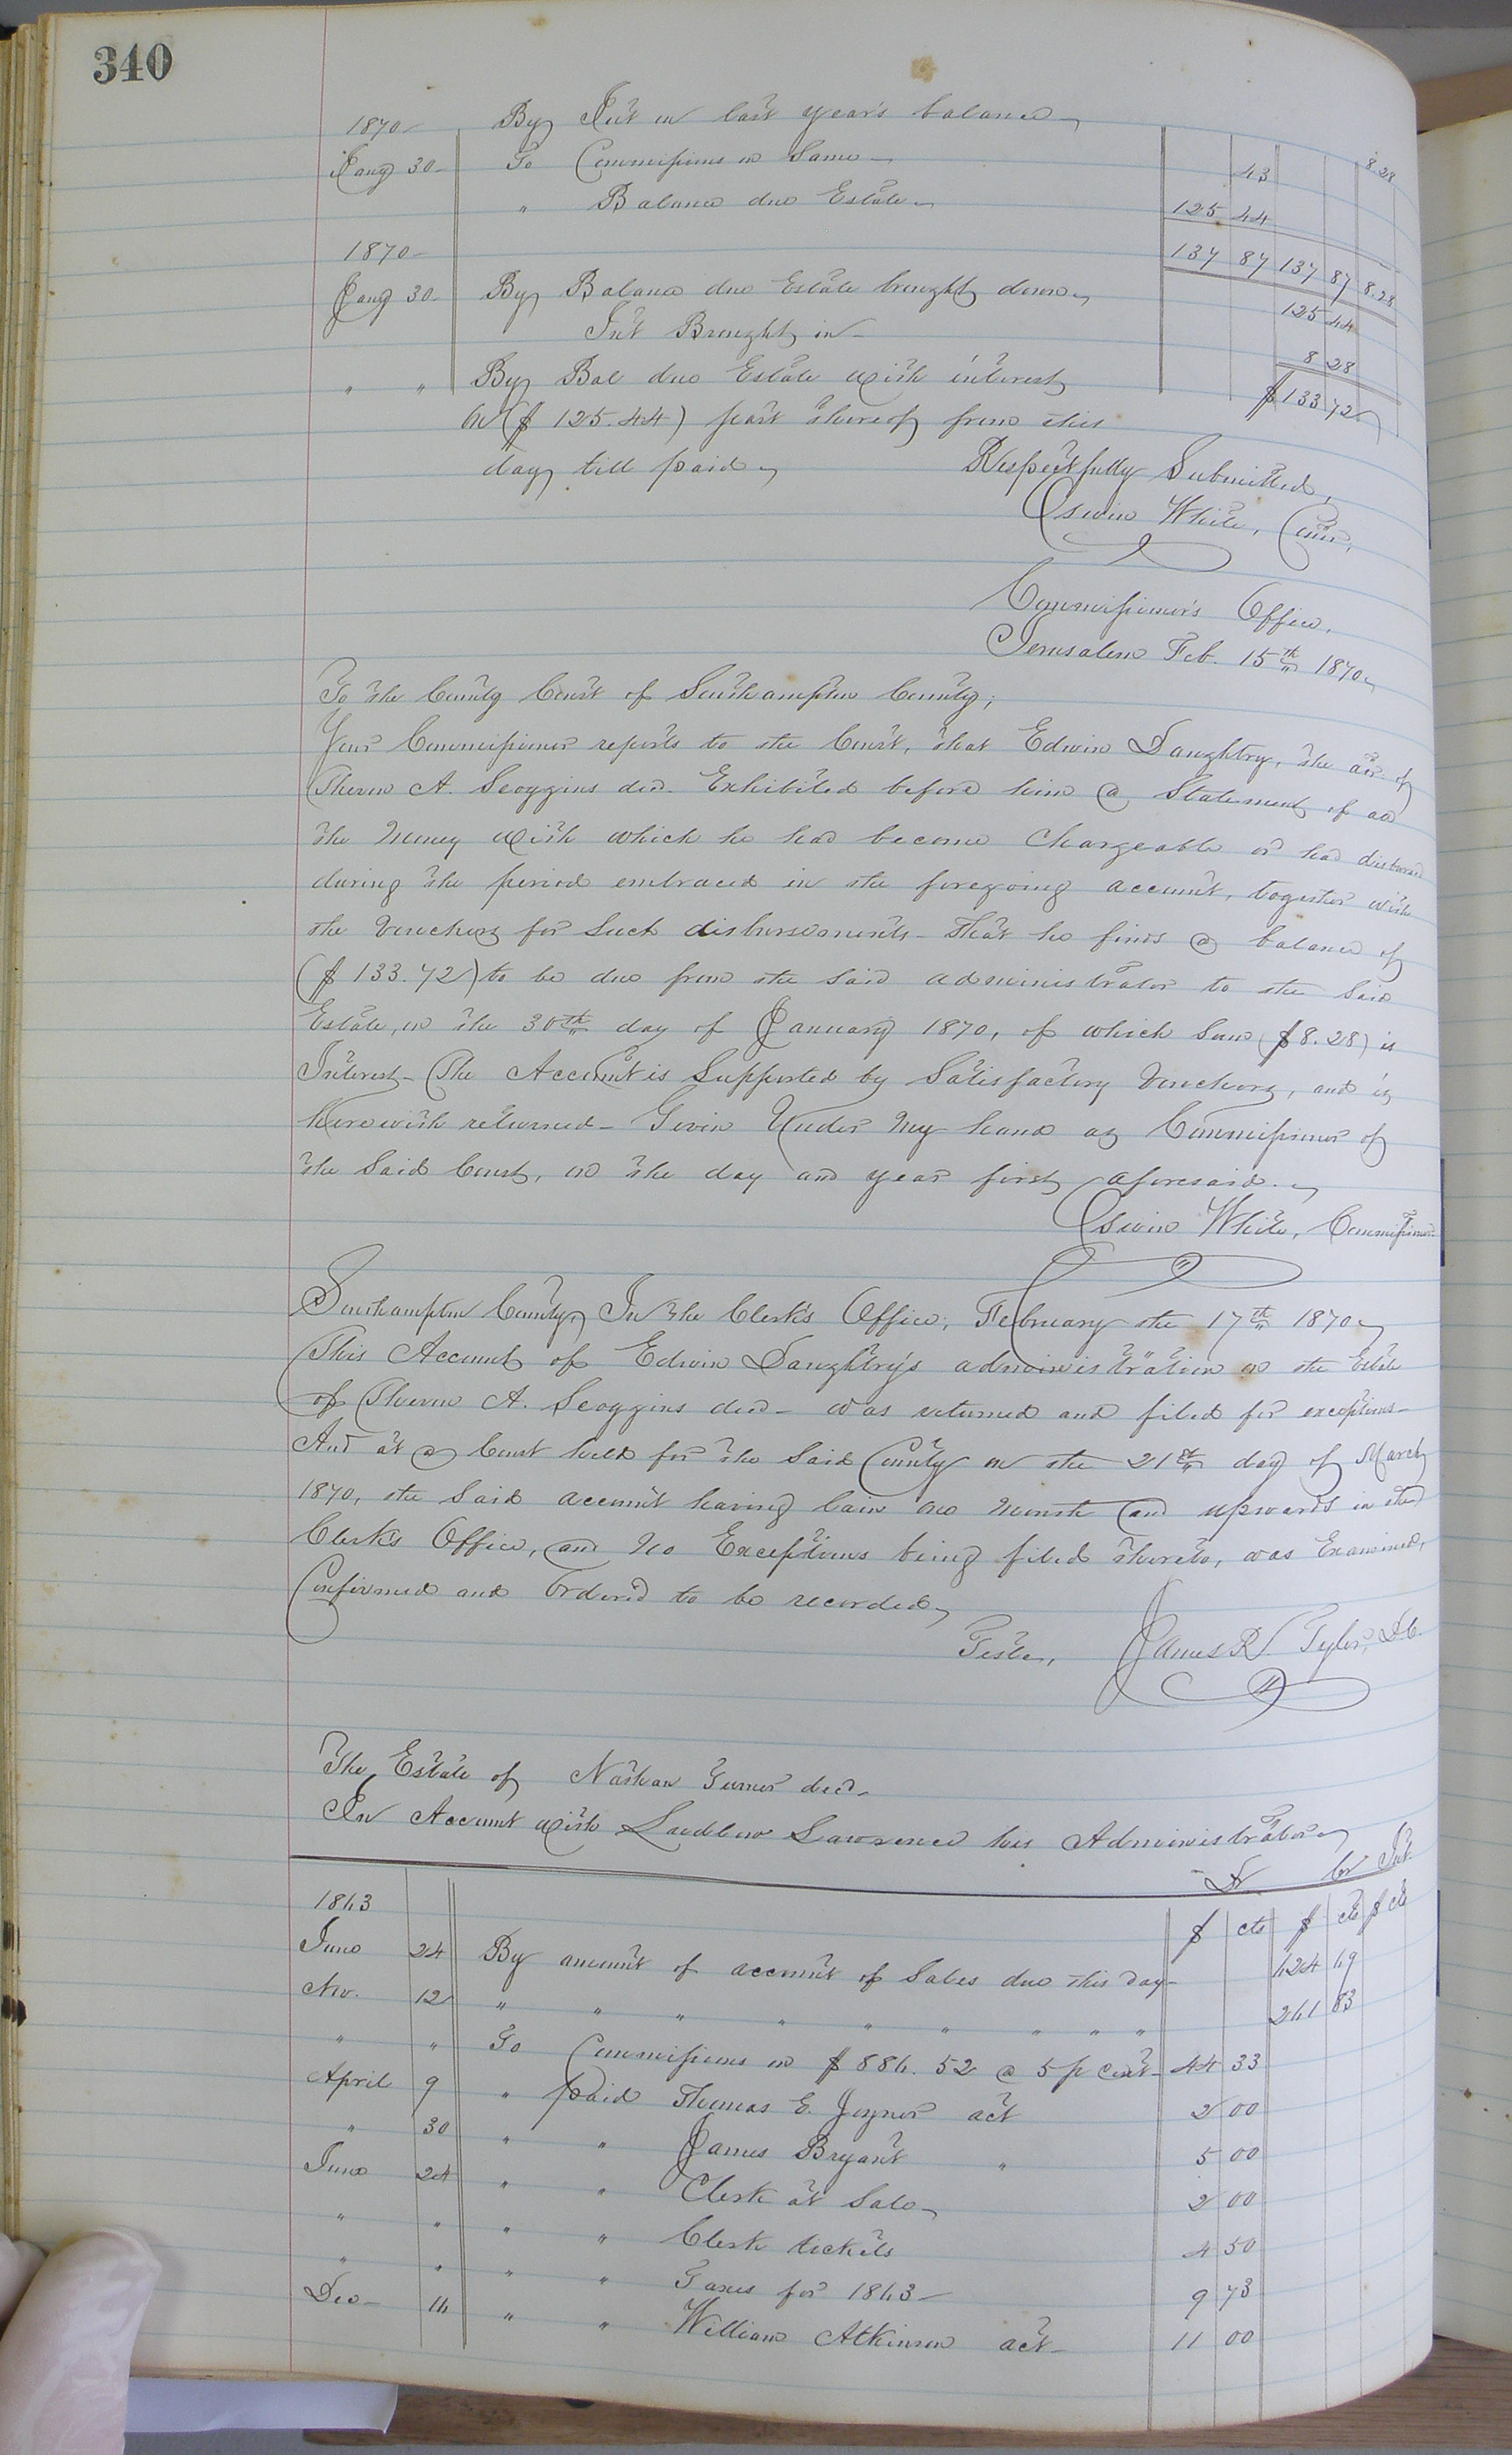 340
1870 By Int on last year's balance 8.28
Jany 30 To Commissions on Same 43
" Balance due Estate 125 44
137 87 137 87 8.28
1870
Jany 30 By Balance due Estate brought down 125 44
Int Brought in 8 28
" " By Bal due Estate with interest $133.72
on ($125.44) part thereof from this
day till paid,
Respectfully Submitted,
Oswin White, Comr.
Commissioner's Office,
Jerusalem Feb. 15th 1870,
To the County Court of Southampton County;
Your Commissioner reports to the Court, that Edwin Daughtry, the adr. of
Theron A. Scoggins decd. Exhibited before him a Statement of all
the Money with which he had become Chargeable or had disbursed
during the period embraced in the foregoing account, together with
the Vouchers for Such disbursements - That he finds a balance of
($133.72) to be due from the said administrator to the Said
Estate, on the 30th day of January 1870, of which Sum ($8.28) is
Interest - The Account is Supported by Satisfactory Vouchers, and is
herewith returned - Given Under My hand as Commissioner of
the Said Court, on the day and year first aforesaid.
Oswin White, Commissioner
Southampton County, In the Clerk's Office, February the 17th 1870,
This Account of Edwin Daughtry's administration on the Estate
of Theron A. Scoggins decd - was returned and filed for exceptions -
And at a Court held for the Said County on the 21st day of March
1870, the Said account having lain one Month and upwards in the
Clerk's Office, and No Exceptions being filed thereto, was Examined,
Confirmed and Ordered to be recorded,
Teste, James R. Tyler, D.C.
The Estate of Nathan Turner decd -
In Account with Lawrence his Administrator,
Dr Cr Int.
1863 $ cts $ cts $ cts
June 24 By amount of account of Sales due this day - 624 69
Nov. 12 " " " " " " " " " 261 83
" " To Commissions on $886.52 @ 5 p Cent - 44 33
April 9 " Paid Thomas E. Joyner act 2 00
" 30 " " James Bryant " 5 00
June 24 " " Clerk at Sale, 2 00
" " " " Clerk tickets 4 50
" " " " Taxes for 1863 - 9 73
Dec - 16 " " William Atkinson act - 11 00